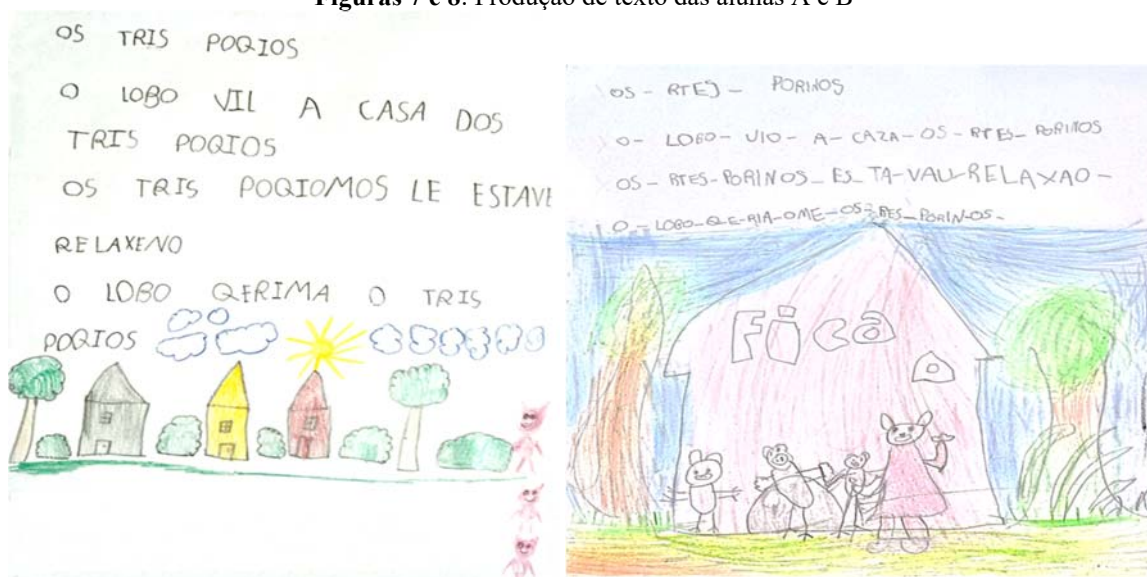 Figuras 7 e 8: Produção de texto das alunas A e B
OS TRIS POQIOS
O LOBO VIL A CASA DOS
TRIS POQIOS
OS TRIS POQIOMOS LE ESTAVE
RELAXENO
O LOBO QERIMA O TRIS
POQIOS
OS - RTES - PORINOS
O - LOBO - VIO - A - CAZA - OS - RTES - PORINOS
OS - RTES - PORINOS - ES - TA - VAU - RELAXAO -
O - LOBO - QE - RIA - OME - OS - RES - PORIN - OS -
Fica